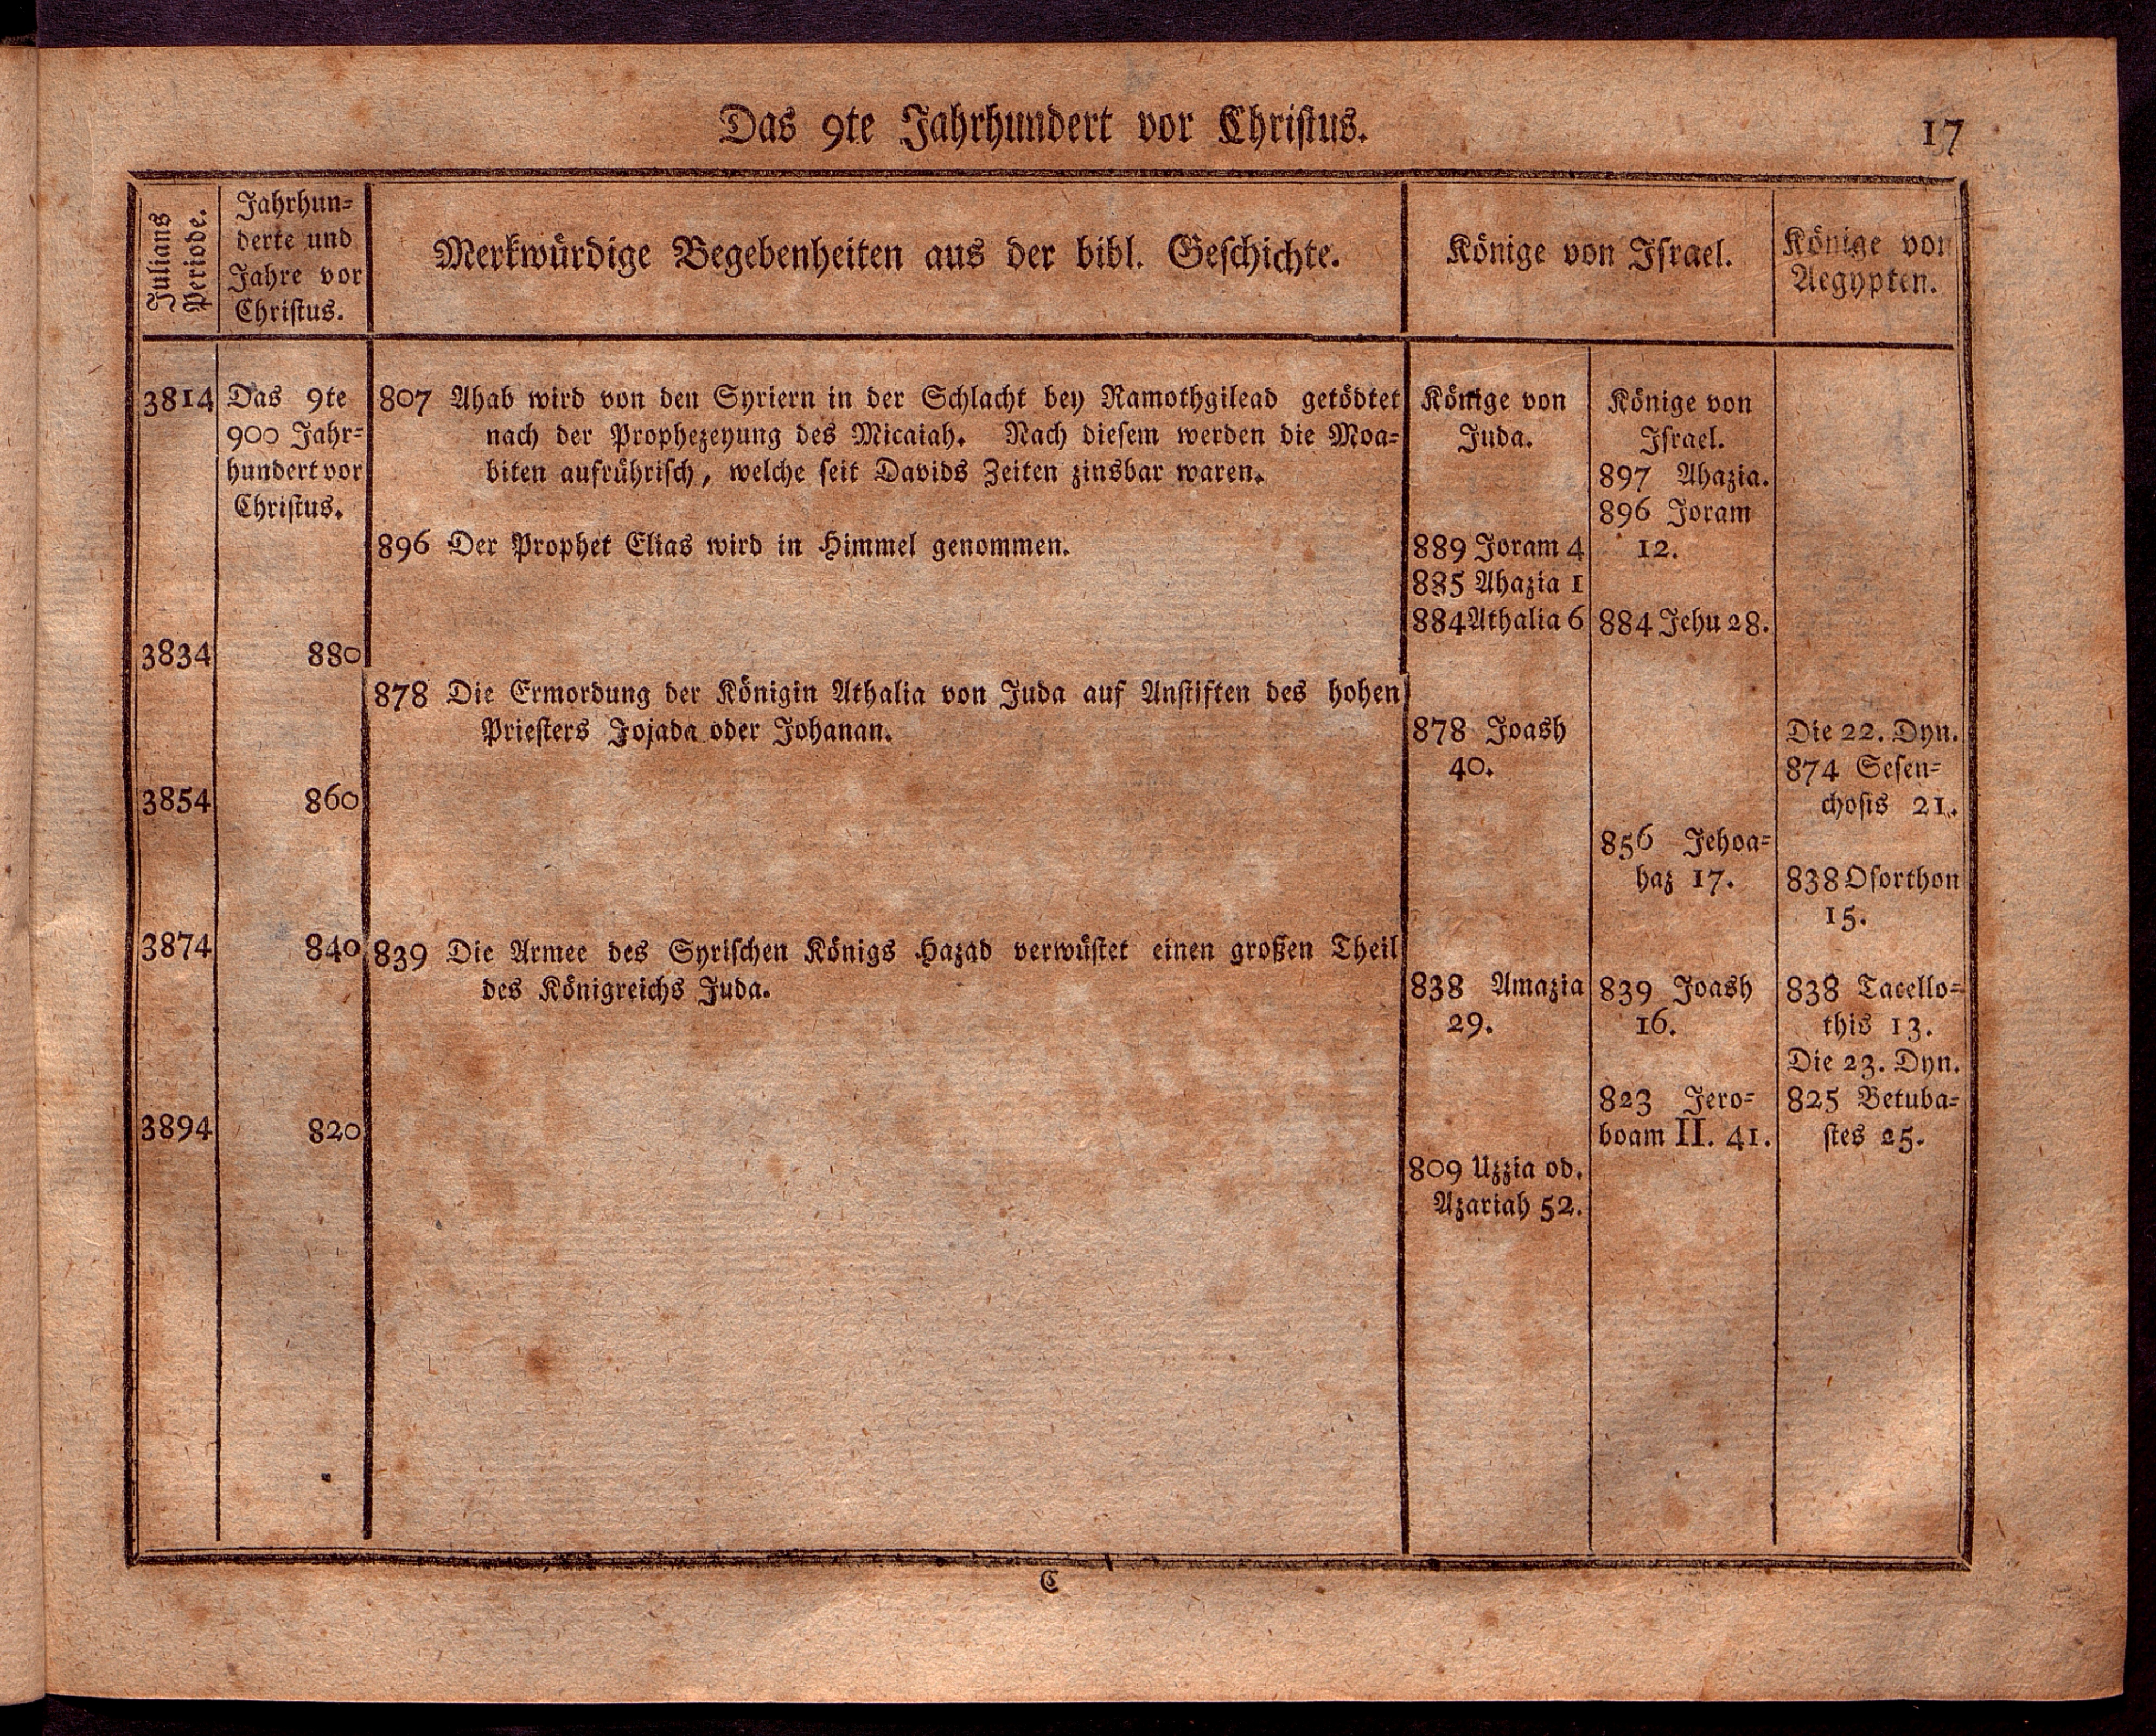 Das 9te Jahrhundert vor Christus.
17
Julians
Periode.
Jahrhun=
derte und
Jahre vor
Christus.
Merkwürdige Begebenheiten aus der bibl. Geschichte.
Könige von Israel.
Könige von
Aegypten.
3814
Das 9te
900 Jahr=
hundert vor
Christus.
807 Ahab wird von den Syriern in der Schlacht bey Ramothgilead getödtet
nach der Prophezeyung des Micaiah. Nach diesem werden die Moa=
biten aufrührisch, welche seit Davids Zeiten zinsbar waren.
896 Der Prophet Elias wird in Himmel genommen.
Könige von
Juda.
889 Joram 4
885 Ahazia 1
884 Athalia 6
Könige von
Israel.
897 Ahazia.
896 Joram
12.
884 Jehu 28.
3834
880
878 Die Ermordung der Königin Athalia von Juda auf Anstiften des hohen
Priesters Jojada oder Johanan.
878 Joash
40.
Die 22. Dyn.
874 Sesen=
chosis 21.
3854
860
856 Jehoa=
haz 17.
838 Osorthon
15.
3874
840
839 Die Armee des Syrischen Königs Hazad verwüstet einen großen Theil
des Königreichs Juda.
838 Amazia
29.
839 Joash
16.
838 Tacello=
this 13.
Die 23. Dyn.
3894
820
823 Jero=
boam II. 41.
825 Betuba=
stes 25.
809 Uzzia od.
Azariah 52.
C